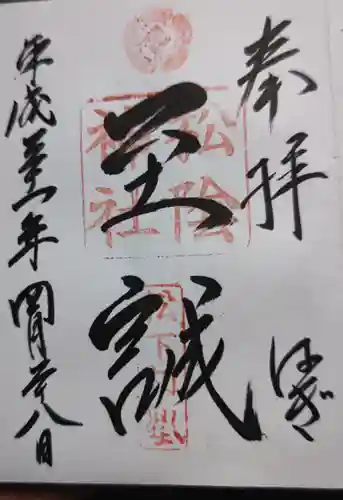 奉拝
はぎ
至誠
松陰神社
松下村塾
平成三十一年四月二十八日